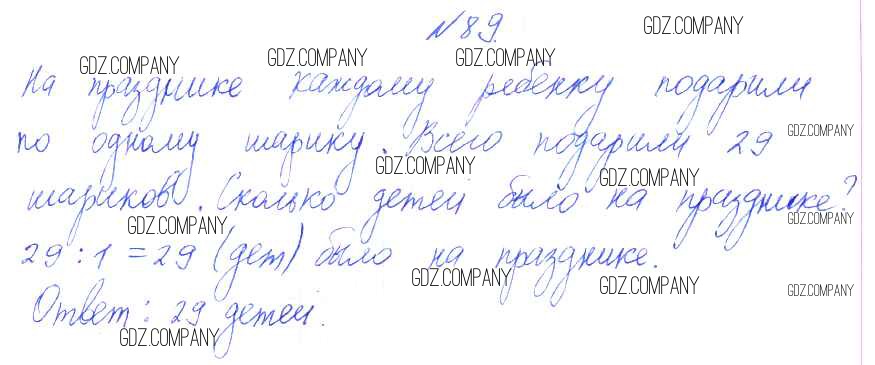 №89.
GDZ.COMPANY
GDZ.COMPANY GDZ.COMPANY GDZ.COMPANY
На празднике каждому ребенку подарили
по одному шарику. Всего подарили 29
GDZ.COMPANY
GDZ.COMPANY GDZ.COMPANY
шариков. Сколько детей было на празднике?
GDZ.COMPANY GDZ.COMPANY
29 : 1 = 29 (дет) было на празднике.
GDZ.COMPANY GDZ.COMPANY GDZ.COMPANY
Ответ: 29 детей.
GDZ.COMPANY